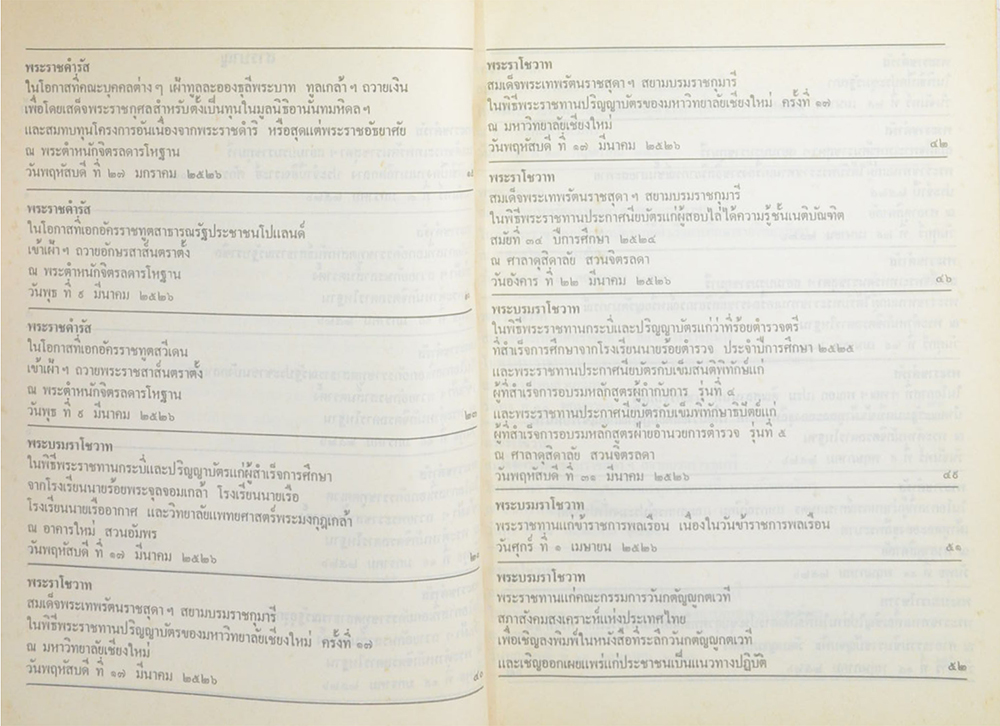 พระราชดำรัส
ในโอกาสที่คณะบุคคลต่าง ๆ เฝ้าทูลละอองธุลีพระบาท ทูลเกล้า ฯ ถวายเงิน
เพื่อโดยเสด็จพระราชกุศลสำหรับตั้งเป็นทุนในมูลนิธิอานันทมหิดล ฯ
และสมทบทุนโครงการอันเนื่องจากพระราชดำริ หรือสุดแต่พระราชอัธยาศัย
ณ พระตำหนักจิตรลดารโหฐาน
วันพฤหัสบดี ที่ ๒๗ มกราคม ๒๕๒๖
พระราชดำรัส
ในโอกาสที่เอกอัครราชทูตสาธารณรัฐประชาชนโปแลนด์
เข้าเฝ้า ฯ ถวายอักษรสาส์นตราตั้ง
ณ พระตำหนักจิตรลดารโหฐาน
วันพุธ ที่ ๙ มีนาคม ๒๕๒๖
พระราชดำรัส
ในโอกาสที่เอกอัครราชทูตสวีเดน
เข้าเฝ้า ฯ ถวายพระราชสาส์นตราตั้ง
ณ พระตำหนักจิตรลดารโหฐาน
วันพุธ ที่ ๙ มีนาคม ๒๕๒๖
พระบรมราโชวาท
ในพิธีพระราชทานกระบี่และปริญญาบัตรแก่ผู้สำเร็จการศึกษา
จากโรงเรียนนายร้อยพระจุลจอมเกล้า โรงเรียนนายเรือ
โรงเรียนนายเรืออากาศ และวิทยาลัยแพทยศาสตร์พระมงกุฎเกล้า
ณ อาคารใหม่ สวนอัมพร
วันพฤหัสบดี ที่ ๑๗ มีนาคม ๒๕๒๖
พระราโชวาท
สมเด็จพระเทพรัตนราชสุดา ฯ สยามบรมราชกุมารี
ในพิธีพระราชทานปริญญาบัตรของมหาวิทยาลัยเชียงใหม่ ครั้งที่ ๑๗
ณ มหาวิทยาลัยเชียงใหม่
วันพฤหัสบดี ที่ ๑๗ มีนาคม ๒๕๒๖
พระราโชวาท
สมเด็จพระเทพรัตนราชสุดา ฯ สยามบรมราชกุมารี
ในพิธีพระราชทานปริญญาบัตรของมหาวิทยาลัยเชียงใหม่ ครั้งที่ ๑๗
ณ มหาวิทยาลัยเชียงใหม่
วันพฤหัสบดี ที่ ๑๗ มีนาคม ๒๕๒๖ ๔๒
พระราโชวาท
สมเด็จพระเทพรัตนราชสุดา ฯ สยามบรมราชกุมารี
ในพิธีพระราชทานประกาศนียบัตรแก่ผู้สอบไล่ได้ความรู้ชั้นเนติบัณฑิต
สมัยที่ ๓๔ ปีการศึกษา ๒๕๒๔
ณ ศาลาดุสิดาลัย สวนจิตรลดา
วันอังคาร ที่ ๒๒ มีนาคม ๒๕๒๖ ๔๖
พระบรมราโชวาท
ในพิธีพระราชทานกระบี่และปริญญาบัตรแก่ว่าที่ร้อยตำรวจตรี
ที่สำเร็จการศึกษาจากโรงเรียนนายร้อยตำรวจ ประจำปีการศึกษา ๒๕๒๕
และพระราชทานประกาศนียบัตรกับเข็มสันติพิทักษ์แก่
ผู้ที่สำเร็จการอบรมหลักสูตรผู้กำกับการ รุ่นที่ ๔
และพระราชทานประกาศนียบัตรกับเข็มพิทักษาธิปัตย์แก่
ผู้ที่สำเร็จการอบรมหลักสูตรฝ่ายอำนวยการตำรวจ รุ่นที่ ๕
ณ ศาลาดุสิดาลัย สวนจิตรลดา
วันพฤหัสบดี ที่ ๓๑ มีนาคม ๒๕๒๖ ๔๙
พระบรมราโชวาท
พระราชทานแก่ข้าราชการพลเรือน เนื่องในวันข้าราชการพลเรือน
วันศุกร์ ที่ ๑ เมษายน ๒๕๒๖ ๕๑
พระบรมราโชวาท
พระราชทานแก่คณะกรรมการวันกตัญญูกตเวที
สภาสังคมสงเคราะห์แห่งประเทศไทย
เพื่อเชิญลงพิมพ์ในหนังสือที่ระลึกวันกตัญญูกตเวที
และเชิญออกเผยแพร่แก่ประชาชนเป็นแนวทางปฏิบัติ ๕๒